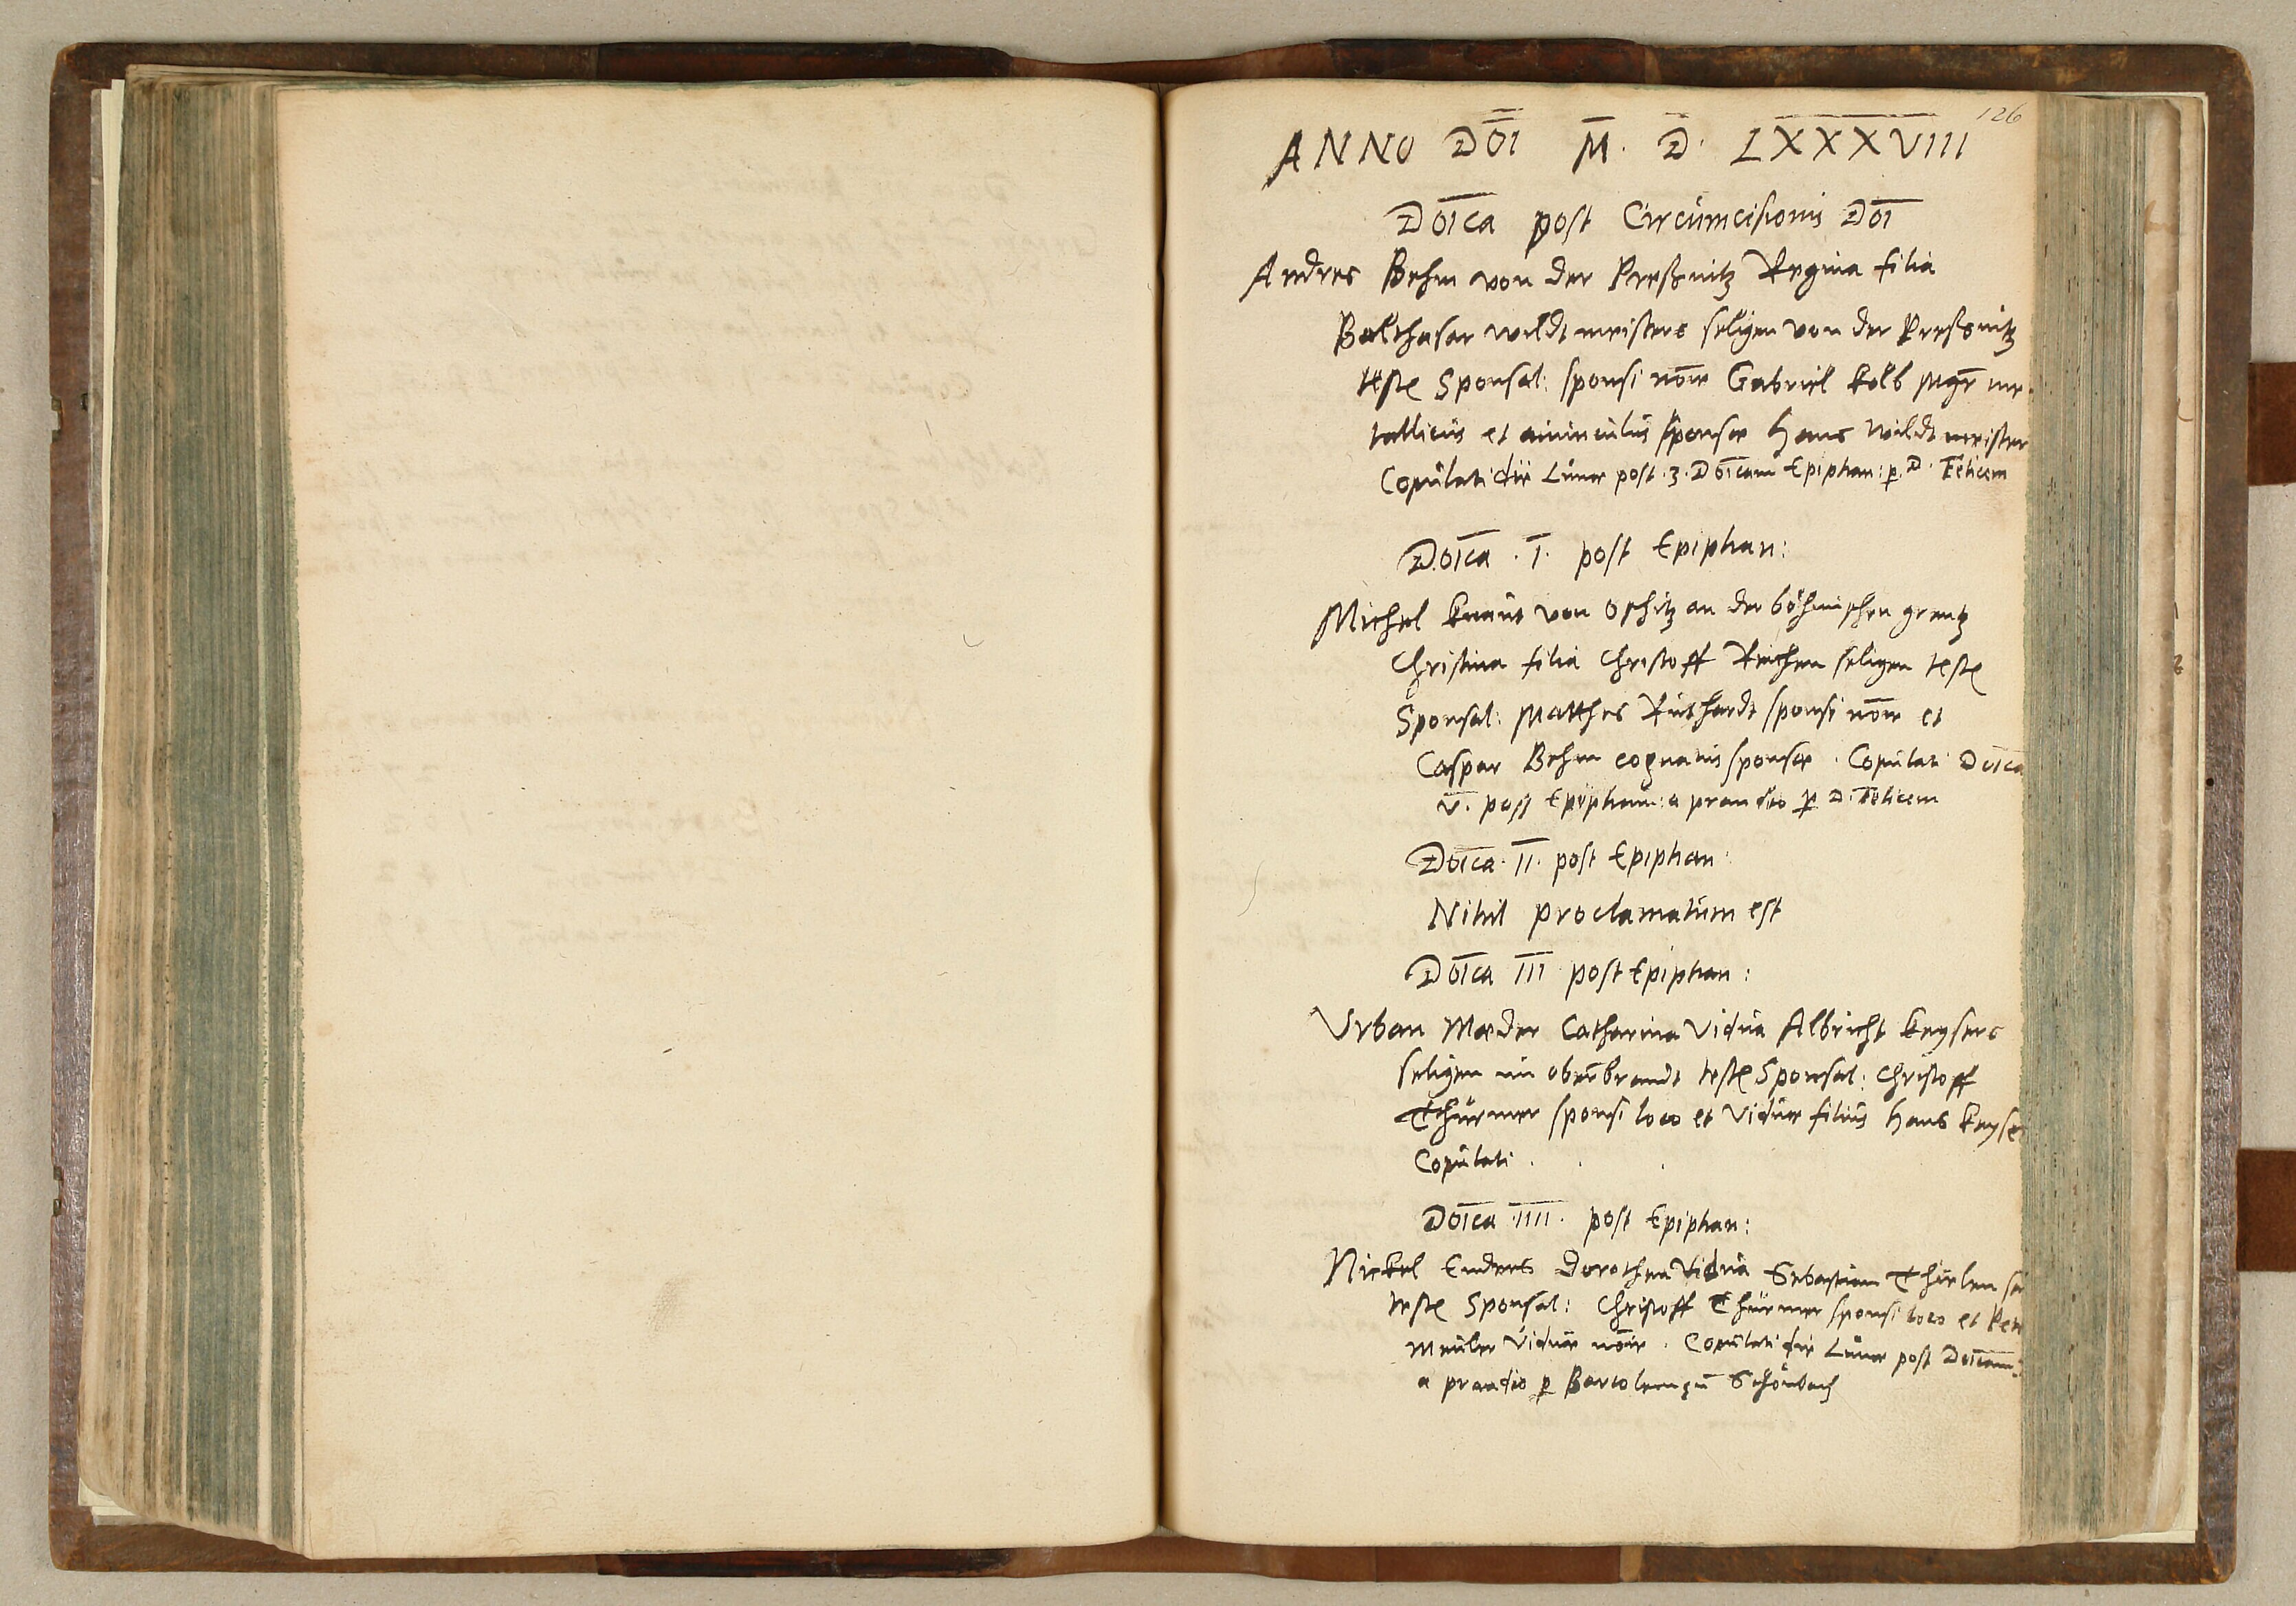 126
ANNO DOI M. D. LXXXVIII
Doica post Circumcisionis Doi
Andres Behm von der Preßnitz Regina filia
Balthasar wildtmeisters seligen von der Preßnitz
teste Sponsal: sponsi noie Gabriel Kolb Mgr me-
tallicus et auunculus sponsae Hans Wildtmeister
Copulati die Lunae post .3. Doicam Epiphan: p. D. Felicem
Doica . I . post Epiphan:
Michel von Opitz an der böhmischen grentz
Christina filia Christoff seligen teste
Sponsal: Matthes sponsi noie et
Caspar Behm cognatus sponsae . Copulati Doica
V. post Epiphan: a prandio p D. Felicem
Doica . II . post Epiphan:
Nihil proclamatum est
Doica III post Epiphan:
Vrban Mæder Catharina Vidua Albricht Keysers
seligen im obernbrandt teste Sponsal: Christoff
Thürmer sponsi loco et Viduae filius Hans Keyser
Copulati .
Doica .IIII. post Epiphan:
Nickel Enders Dorothea Vidua Sebastian
teste Sponsal: Christoff Thürmer sponsi loco et
Meuler Viduae noie . Copulati die Lunae post Doicam
a prandio p Bartolemeum Schönbach